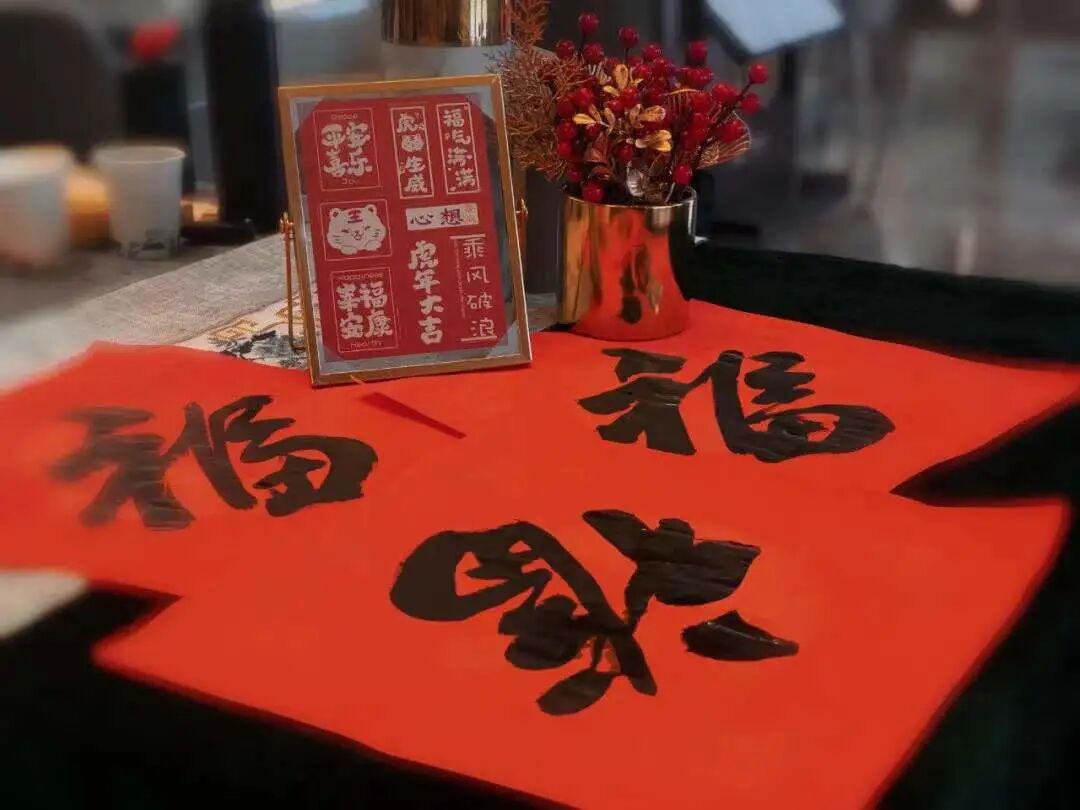 Peace
平安
喜乐
Joy
虎虎生威
福气满满
王
心想
虎年大吉
乘风破浪
Happiness
幸福
安康
Health
福
福
福